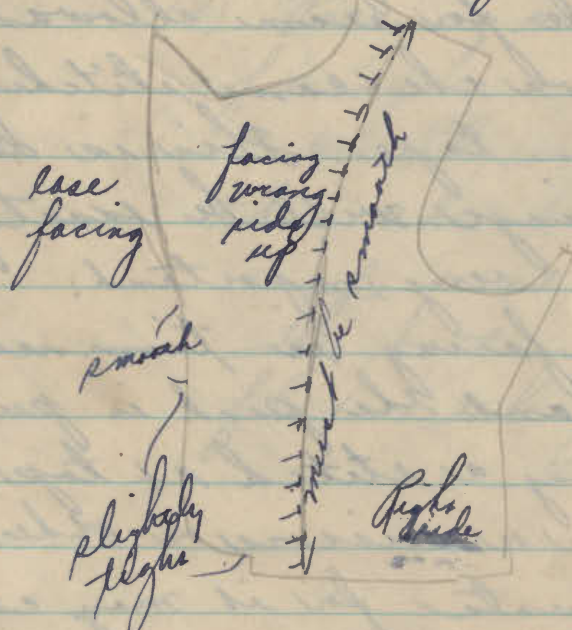 ease
facing
facing
wrong
side
up
must be smooth
smooth
slightly
tight
Right
side